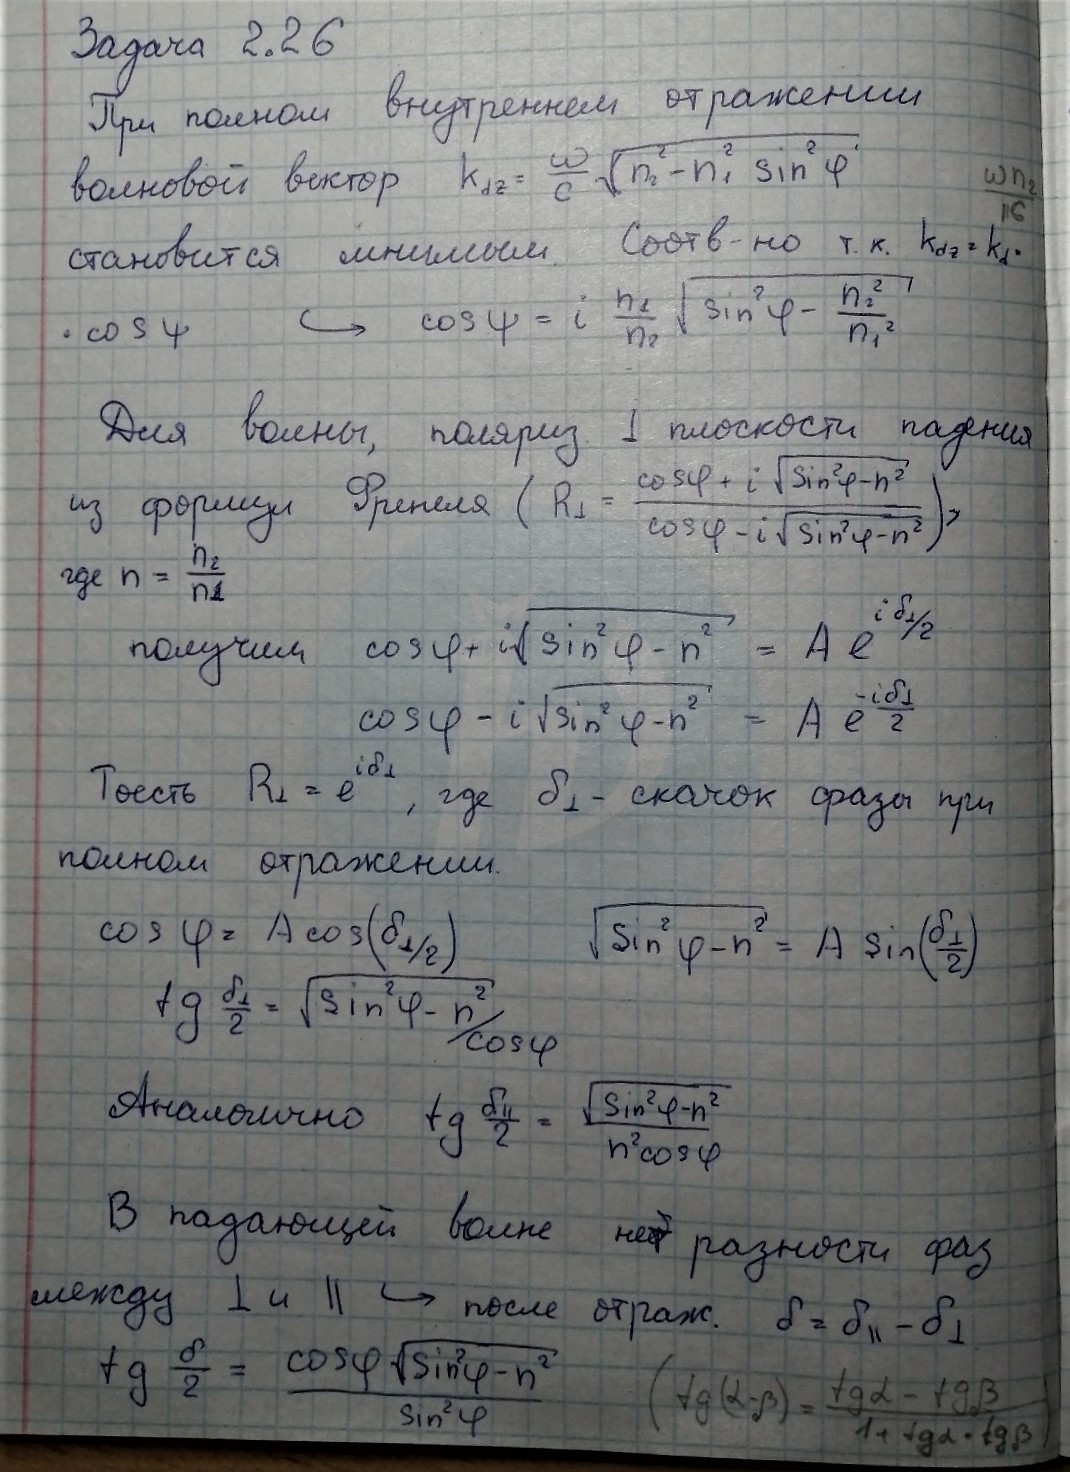 Задача 2.26
При полном внутреннем отражении
волновой вектор k_dz = ω/c √(n₂² - n₁² sin²φ)
ωn₂/с
становится мнимым. Соотв-но т.к. k_dz = k_d·
·cosψ ↪ cosψ = i n₁/n₂ √(sin²φ - n₂²/n₁²)
Для волны, поляриз. ⊥ плоскости падения
из формулы Френеля (R⊥ = (cosφ + i√(sin²φ-n²))/(cosφ - i√(sin²φ-n²))),
где n = n₂/n₁
получим cosφ + i√(sin²φ - n²) = A e^(iδ⊥/2)
cosφ - i√(sin²φ-n²) = A e^(-iδ⊥/2)
Тоесть R⊥ = e^(iδ⊥), где δ⊥ - скачок фазы при
полном отражении.
cosφ = A cos(δ⊥/2) √(sin²φ-n²) = A sin(δ⊥/2)
tg δ⊥/2 = √(sin²φ-n²)/cosφ
Аналогично tg δ∥/2 = √(sin²φ-n²)/(n²cosφ)
В падающей волне нет разности фаз
между ⊥ и ∥ ↪ после отраж. δ = δ∥ - δ⊥
tg δ/2 = cosφ√(sin²φ-n²)/sin²φ (tg(α-β) = (tgα - tgβ)/(1+tgα·tgβ))